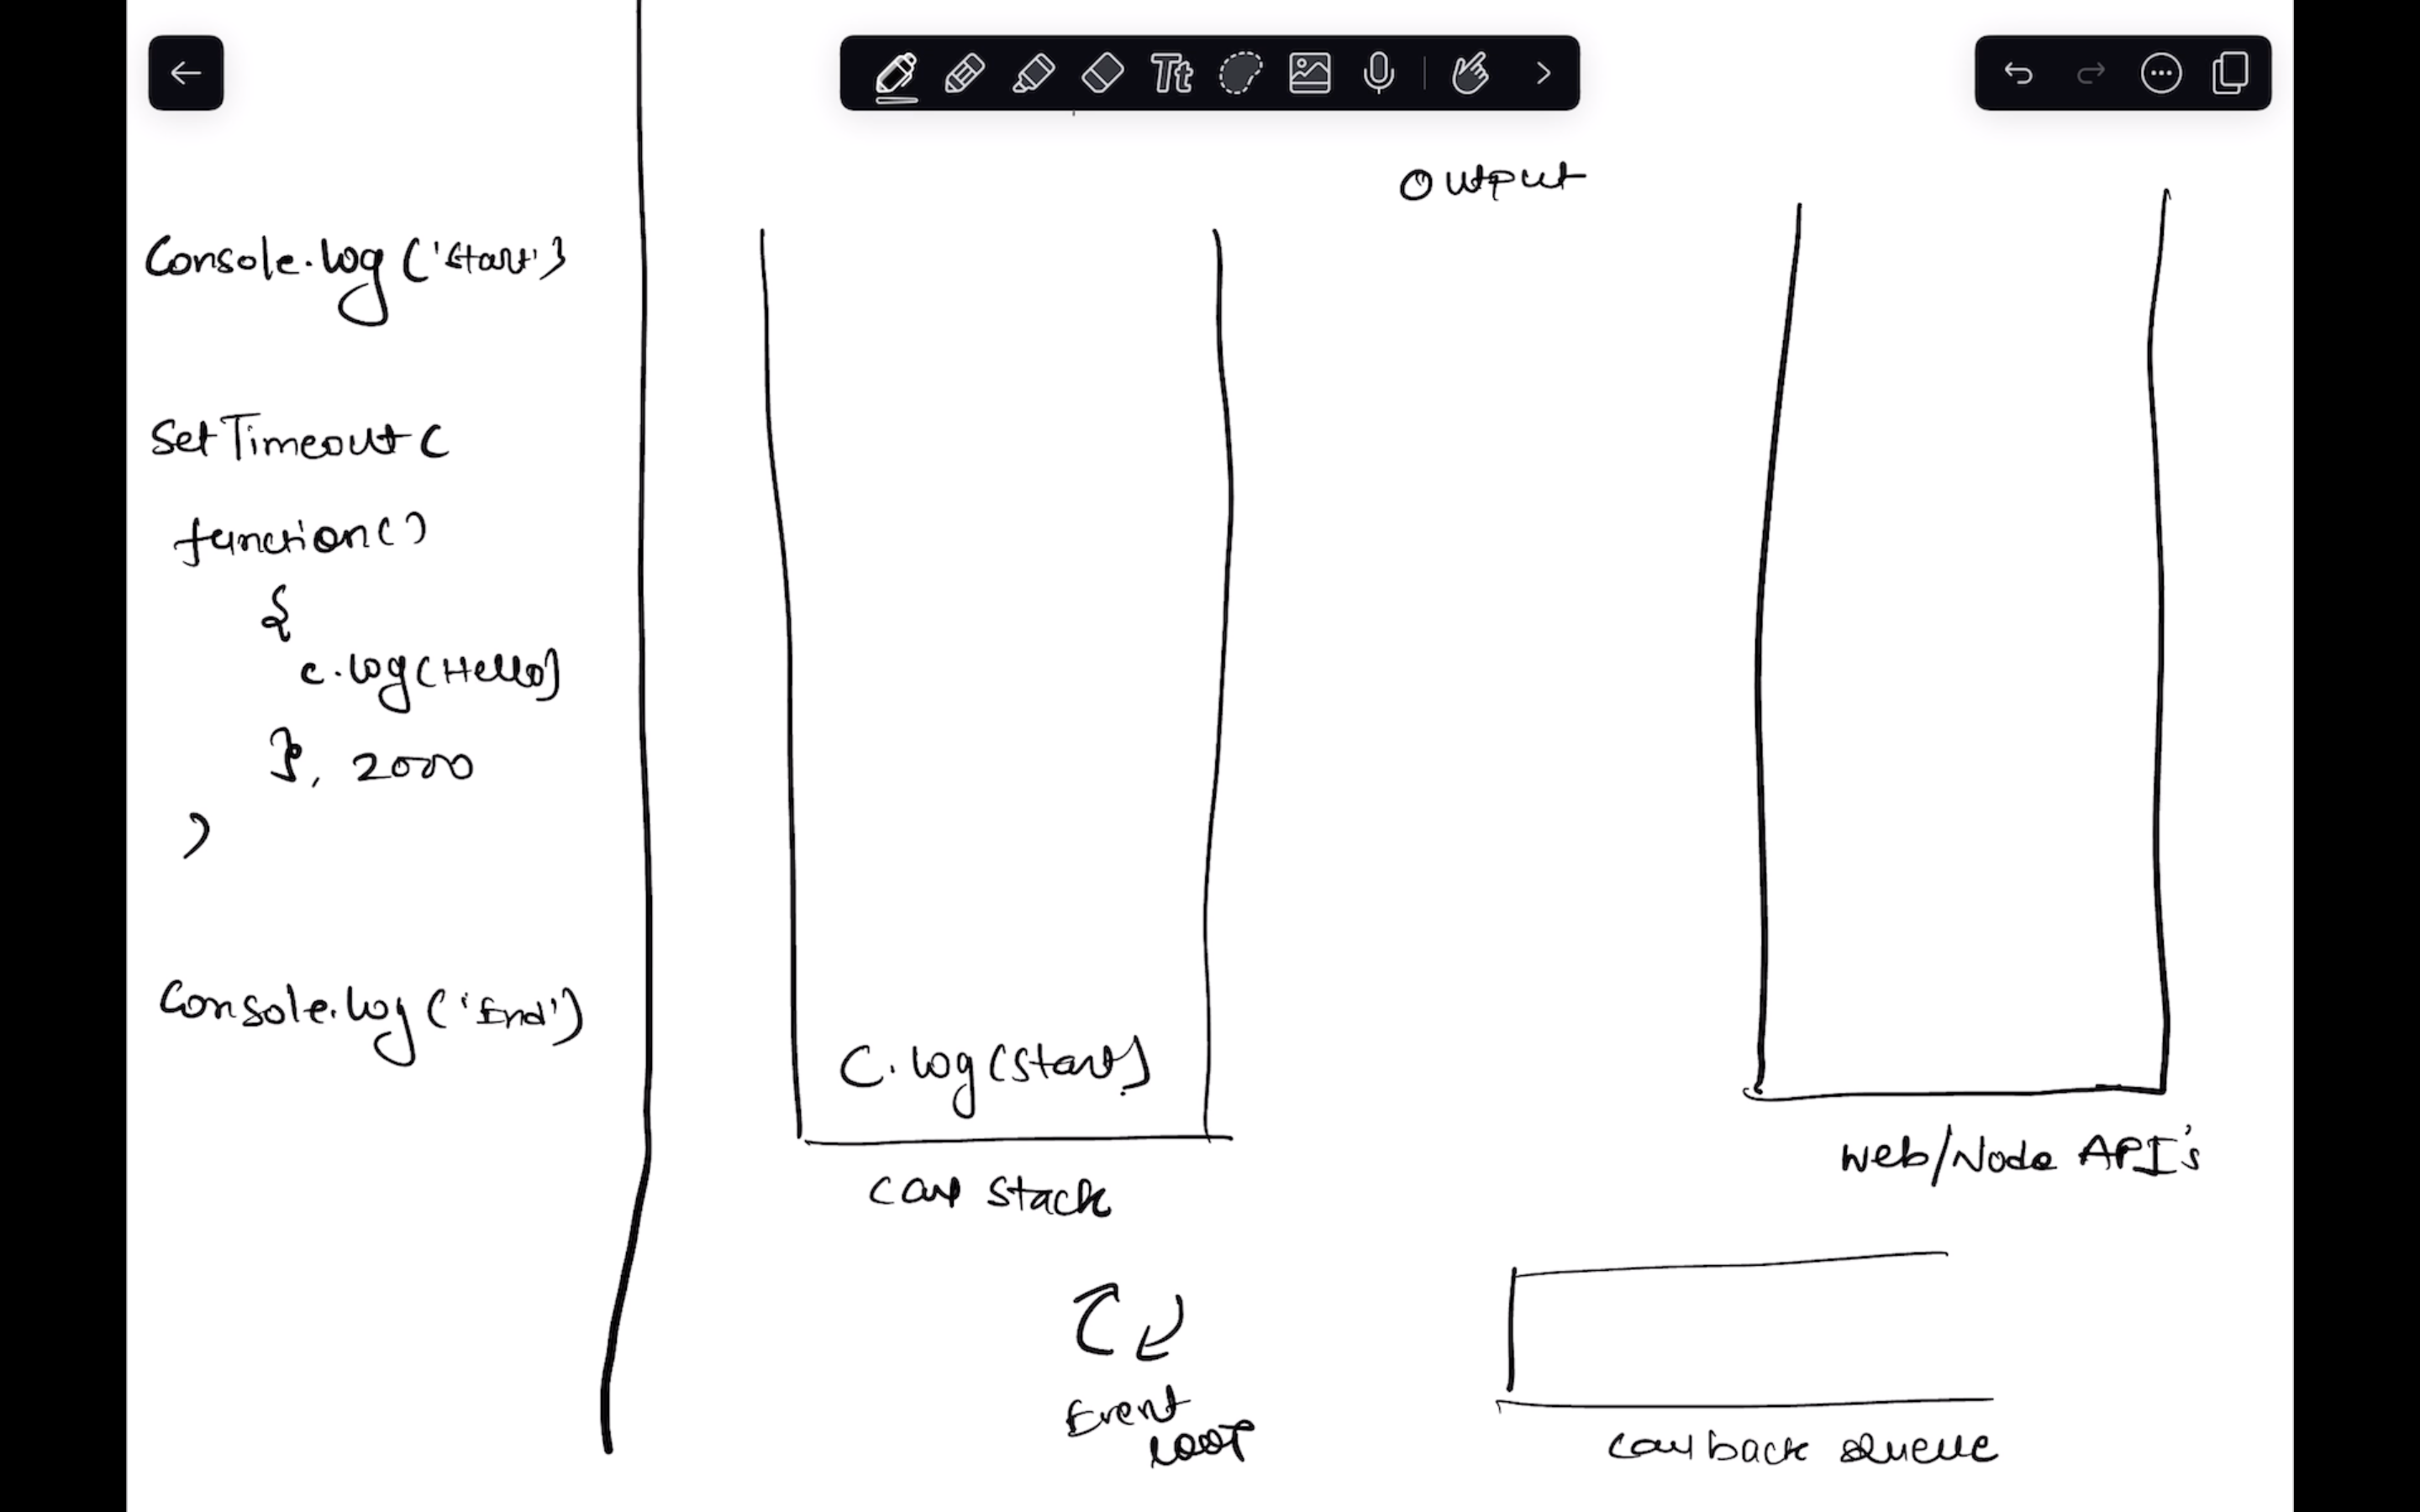 Tt
Output
Console.log('Start')
SetTimeout(
function()
{
c.log(Hello)
}, 2000
)
Console.log('End')
C.log(Start)
Call Stack
Web/Node API's
Event
Loop
Callback Queue